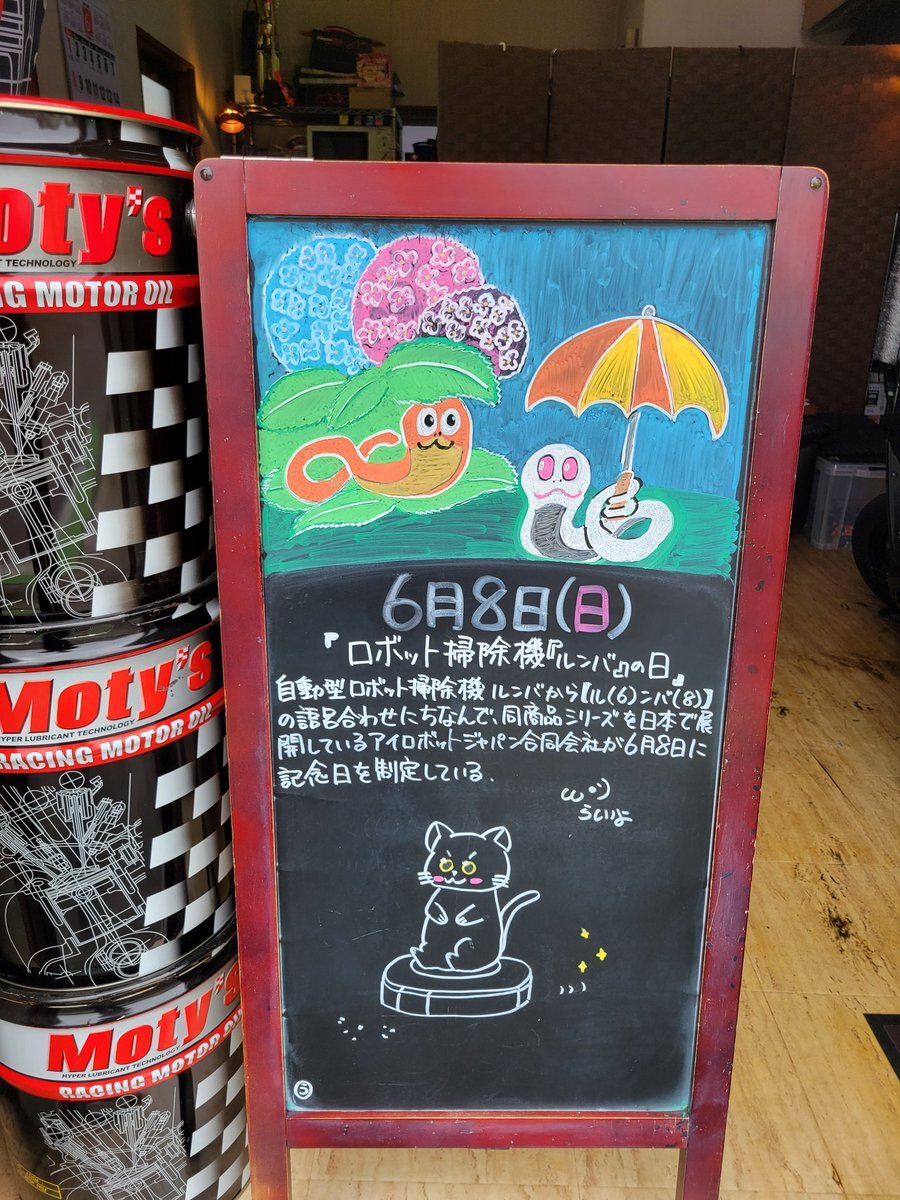 oty's
TECHNOLOGY
ING MOTOR OIL
6月8日(日)
『ロボット掃除機『ルンバ』の日』
自動型ロボット掃除機 ルンバから【ル(6)ンバ(8)】
の語呂合わせにちなんで、同商品シリーズを日本で展
開しているアイロボットジャパン合同会社が6月8日に
記念日を制定している.
ω・)
ういよ
Moty's
HYPER LUBRICANT TECHNOLOGY
RACING MOTOR OIL
Moty's
HYPER LUBRICANT TECHNOLOGY
RACING MOTOR OIL